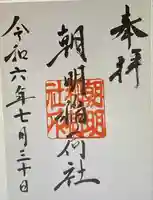 奉拝
朝明稲荷社
令和六年七月三十日